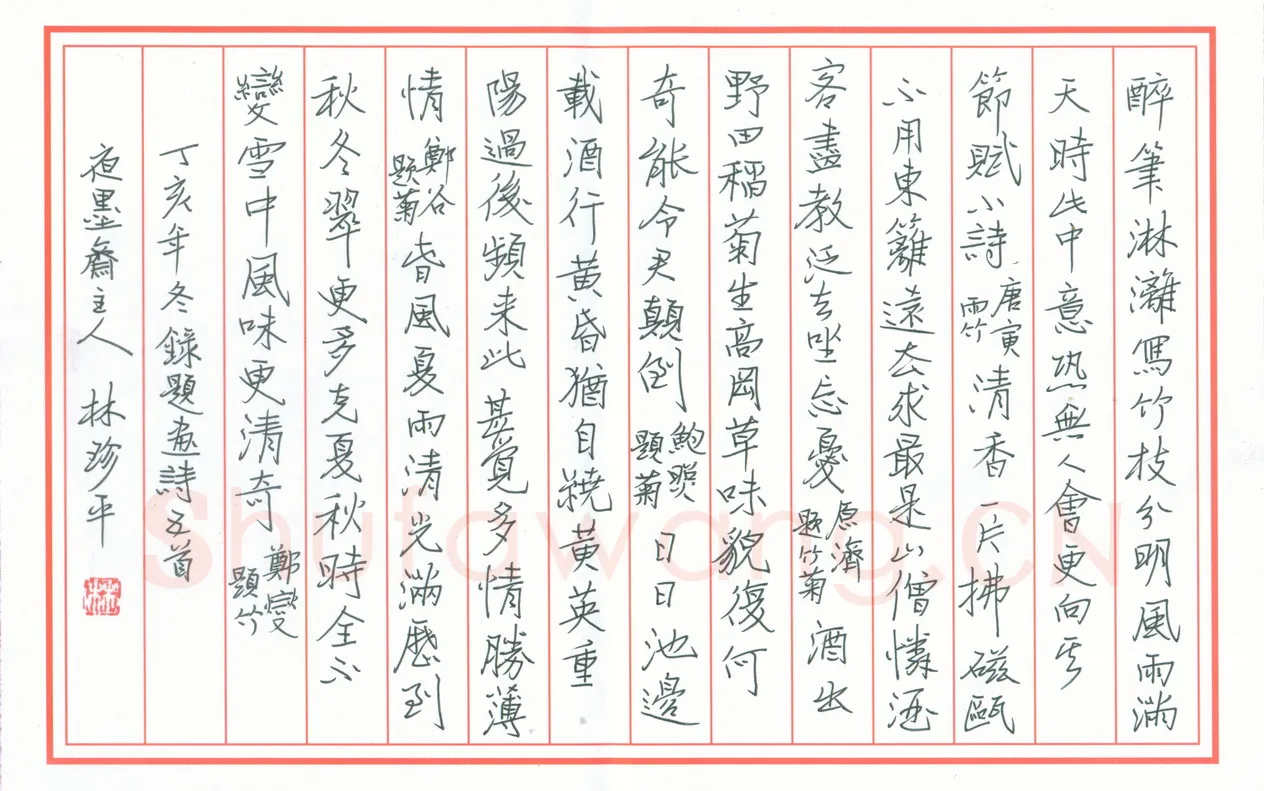 醉筆淋灕寫竹枝分明風雨滿
天時此中意恐無人會更向其
節賦小詩唐寅雨竹清香一片拂磁甌
不用東籬遠去求最是山僧憐酒
客盡教泛去坐忘憂原濟題竹菊酒出
野田稻菊生高岡草味貌復何
奇能令君顛倒鮑照題菊日日池邊
載酒行黃昏猶自繞黃英重
陽過後頻来此甚覺多情勝薄
情鄭谷題菊春風夏雨清光滿歷到
秋冬翠更多克夏秋時全不
變雪中風味更清奇鄭燮題竹
丁亥年冬錄題畫詩五首
夜墨齋主人 林珍平
林
Shufawang.CN